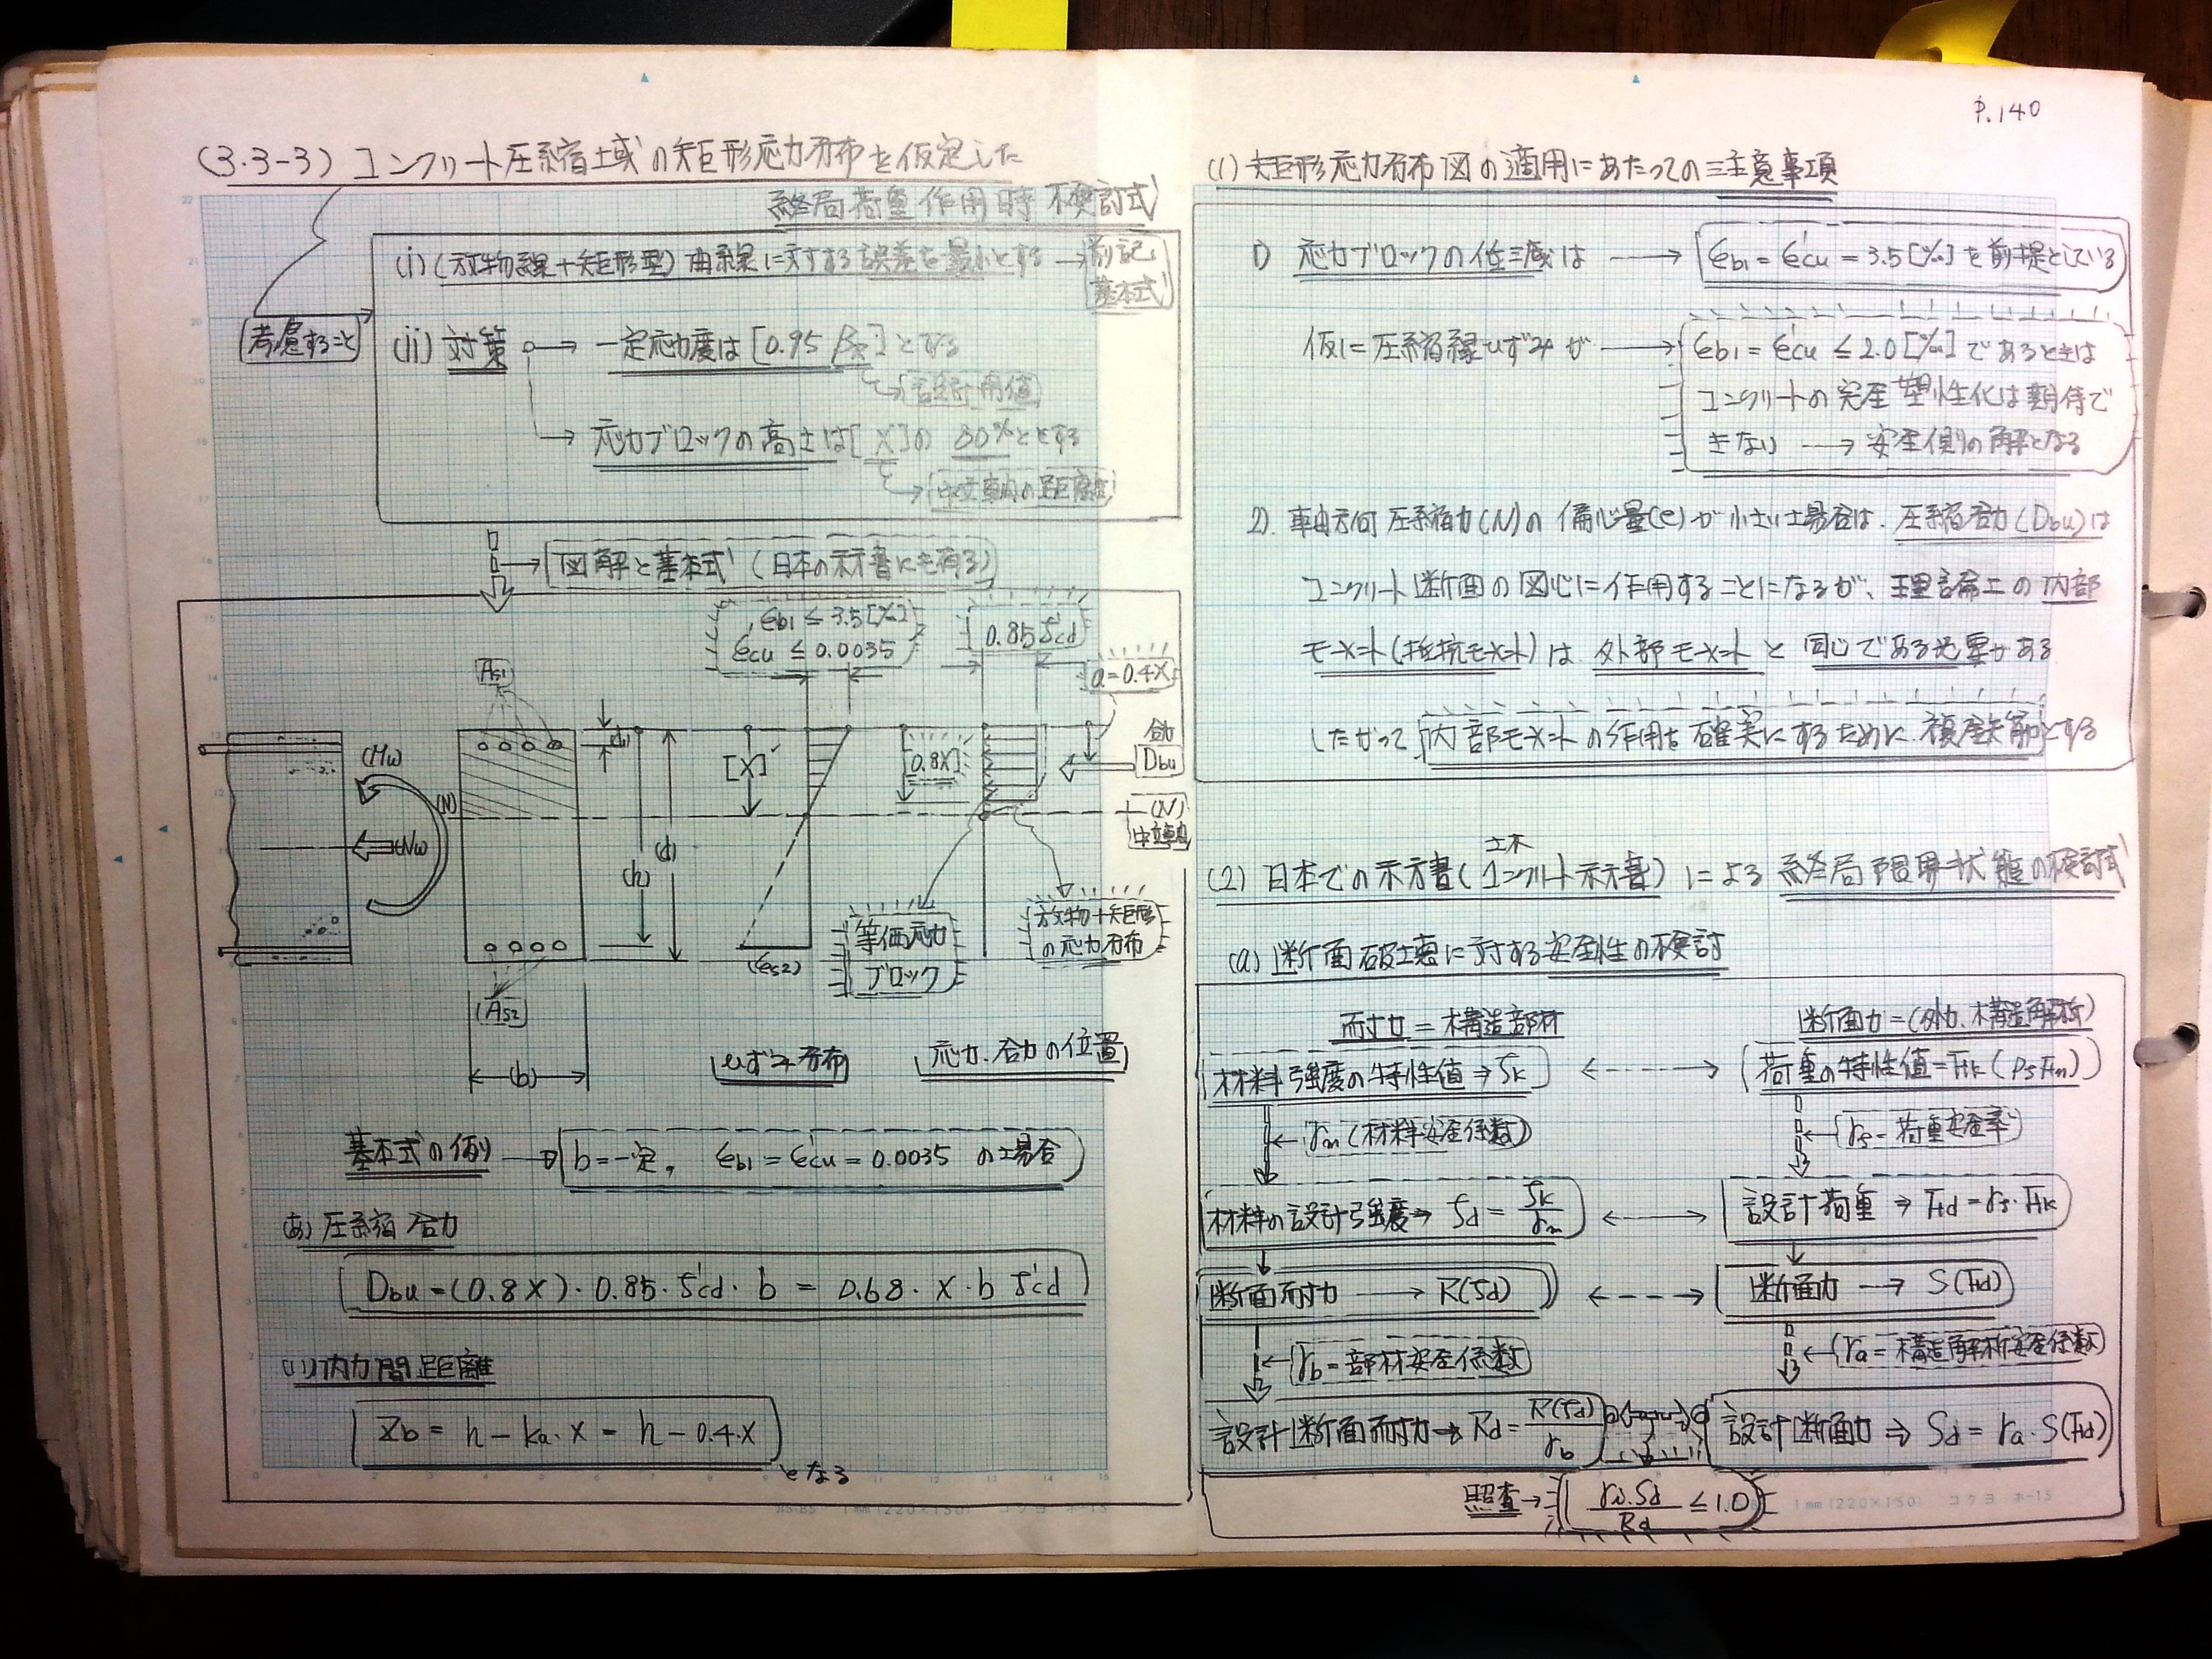 P.140
(3.3-3) コンクリート圧縮域の矩形応力分布を仮定した
終局荷重作用時検討式
考慮すること
(i) (放物線+矩形型)曲線に対する誤差を最小とする → 前記、基本式
(ii) 対策 → 一定応力度は[0.95 βR]とする
設計用値
→ 応力ブロックの高さは[X]の 80%とする
中立軸の距離
図解と基本式 (日本の示方書にも有る)
εb1 ≤ 3.5[‰]
ε'cu ≤ 0.0035
0.85 f'cd
a=0.4X
As1
(Mu)
(N)
(Nu)
[X]
0.8X
合力
Dbu
(N)
中立軸
(h)
(d)
(εs2)
等価応力
ブロック
放物+矩形
の応力分布
As2
(b)
ひずみ分布
応力、合力の位置
基本式の例 → b=一定, εb1 = ε'cu = 0.0035 の場合
(あ) 圧縮合力
Dbu = (0.8X)・0.85・f'cd・b = 0.68・X・b f'cd
(い) 内力間距離
Zb = h - ka・X = h - 0.4・X
となる
(1) 矩形応力分布図の適用にあたっての注意事項
1) 応力ブロックの低減は → εb1 = ε'cu = 3.5[‰]を前提としている
仮に圧縮縁ひずみが → εb1 = ε'cu ≤ 2.0[‰]であるときは
コンクリートの完全塑性化は期待で
きない → 安全側の解となる
2). 軸方向圧縮力(N)の偏心量(e)が小さい場合は、圧縮合力(Dbu)は
コンクリート断面の図心に作用することになるが、理論上の内部
モーメント(抵抗モーメント)は外部モーメントと同じである必要がある
したがって内部モーメントの作用を確実にするために、複鉄筋とする
土木
(2) 日本での示方書(コンクリート示方書)による終局限界状態の検討式
(a) 断面破壊に対する安全性の検討
耐力=構造部材
断面力=(外力、構造解析)
材料強度の特性値⇒fk
荷重の特性値=Fk (ρf Fm)
γm (材料安全係数)
γf=荷重安全率
材料の設計強度⇒ fd = fk/γm
設計荷重 ⇒ Fd=γf・Fk
断面耐力 → R(fd)
断面力 → S(Fd)
γb=部材安全係数
γa=構造解析安全係数
設計断面耐力→Rd=R(fd)/γb
設計断面力 ⇒ Sd = γa・S(Fd)
照査→ γi・Sd/Rd ≤ 1.0
1mm(220×150) コクヨ ホ-15
1mm(220×150) コクヨ ホ-15